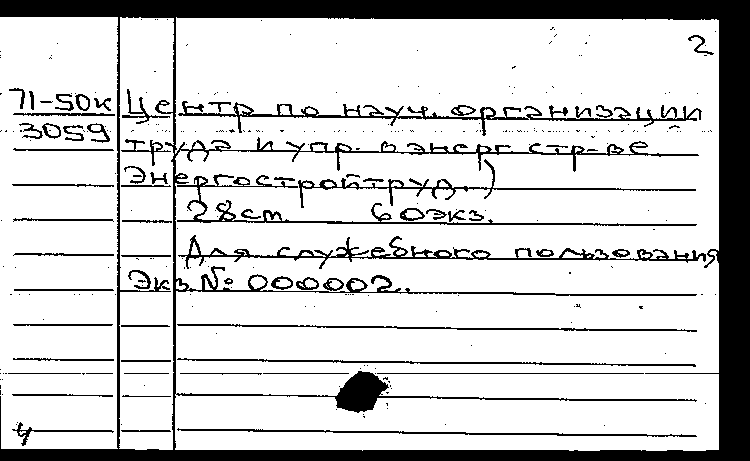 2
71-50к Центр по науч. организации
3059 труда и упр. в энерг. стр-ве
Энергостройтруд.)
28 см. 60 экз.
Для служебного пользования
Экз. № 000002.
4